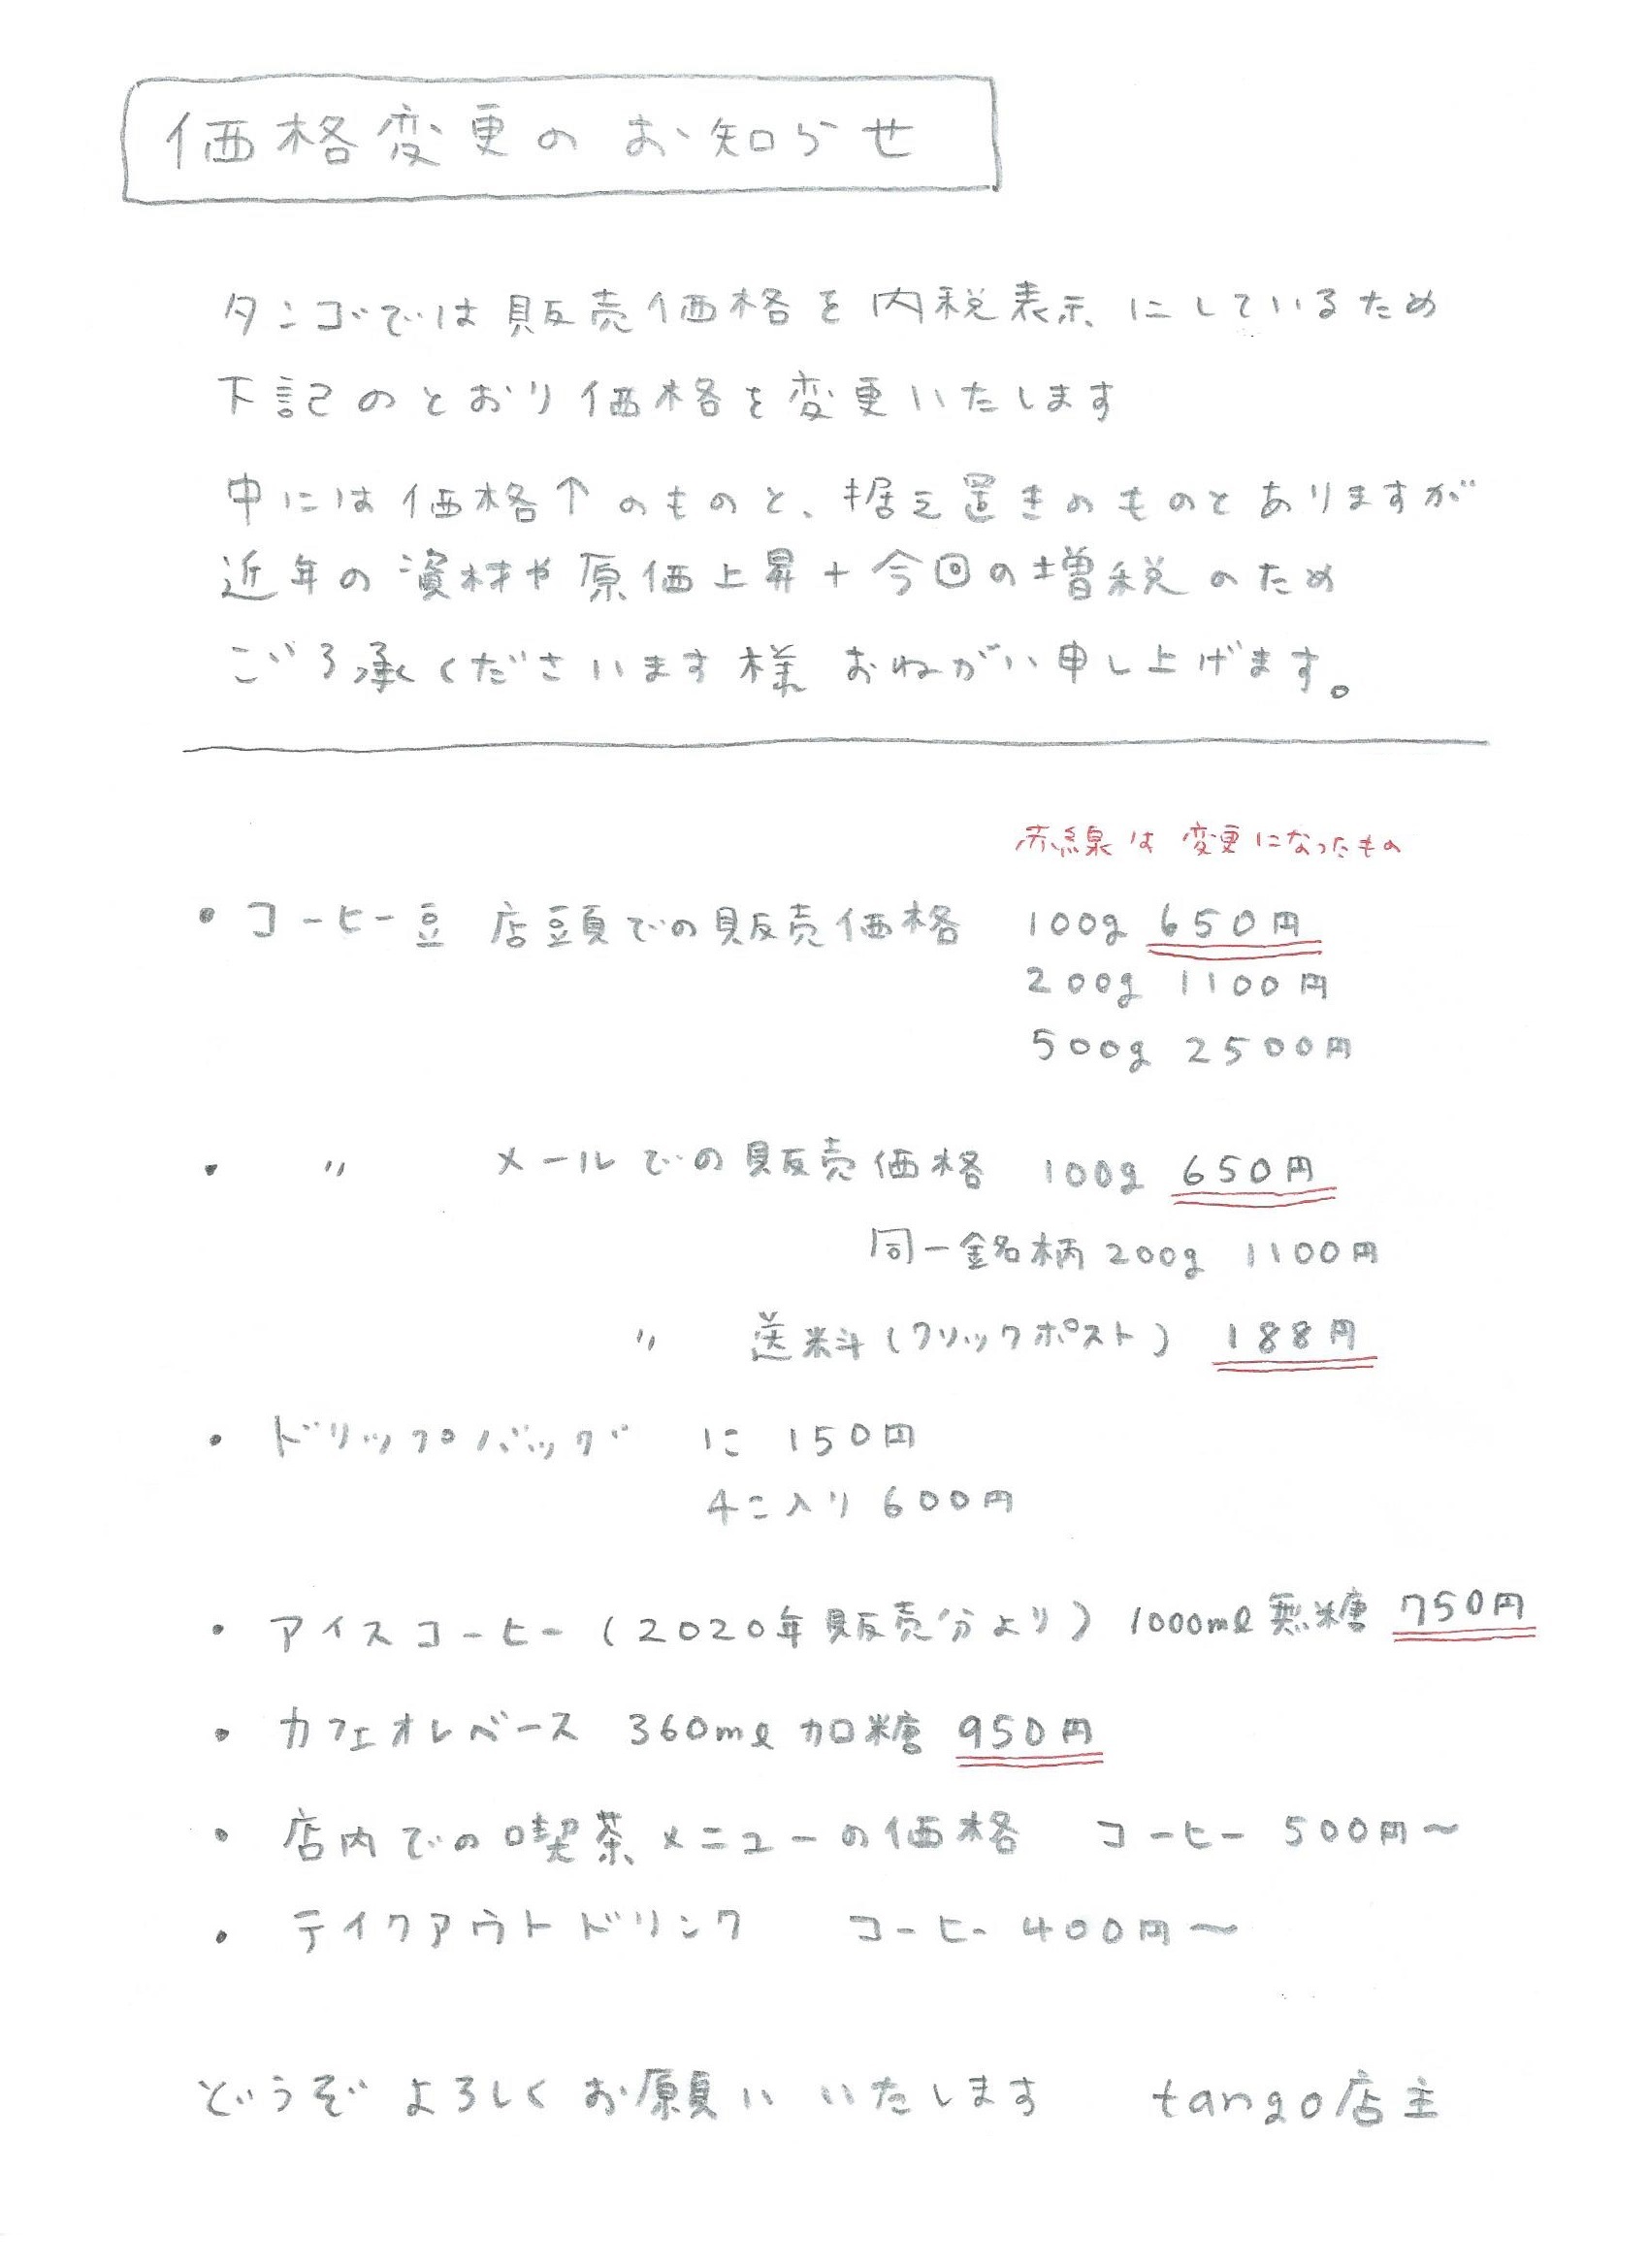 価格変更のお知らせ
タンゴでは販売価格を内税表示にしているため
下記のとおり価格を変更いたします
中には価格↑のものと、据え置きのものとありますが
近年の資材や原価上昇+今回の増税のため
ごろ承くださいます様おねがい申し上げます。
赤線は変更になったもの
・コーヒー豆 店頭での販売価格 100g 650円
200g 1100円
500g 2500円
・ 〃 メールでの販売価格 100g 650円
同一銘柄 200g 1100円
〃 送料(クリックポスト) 188円
・ドリップバッグ 1コ 150円
4コ入り 600円
・アイスコーヒー(2020年販売分より) 1000ml 無糖 750円
・カフェオレベース 360ml 加糖 950円
・店内での喫茶メニューの価格 コーヒー 500円〜
・テイクアウトドリンク コーヒー 400円〜
どうぞよろしくお願いいたします tango店主